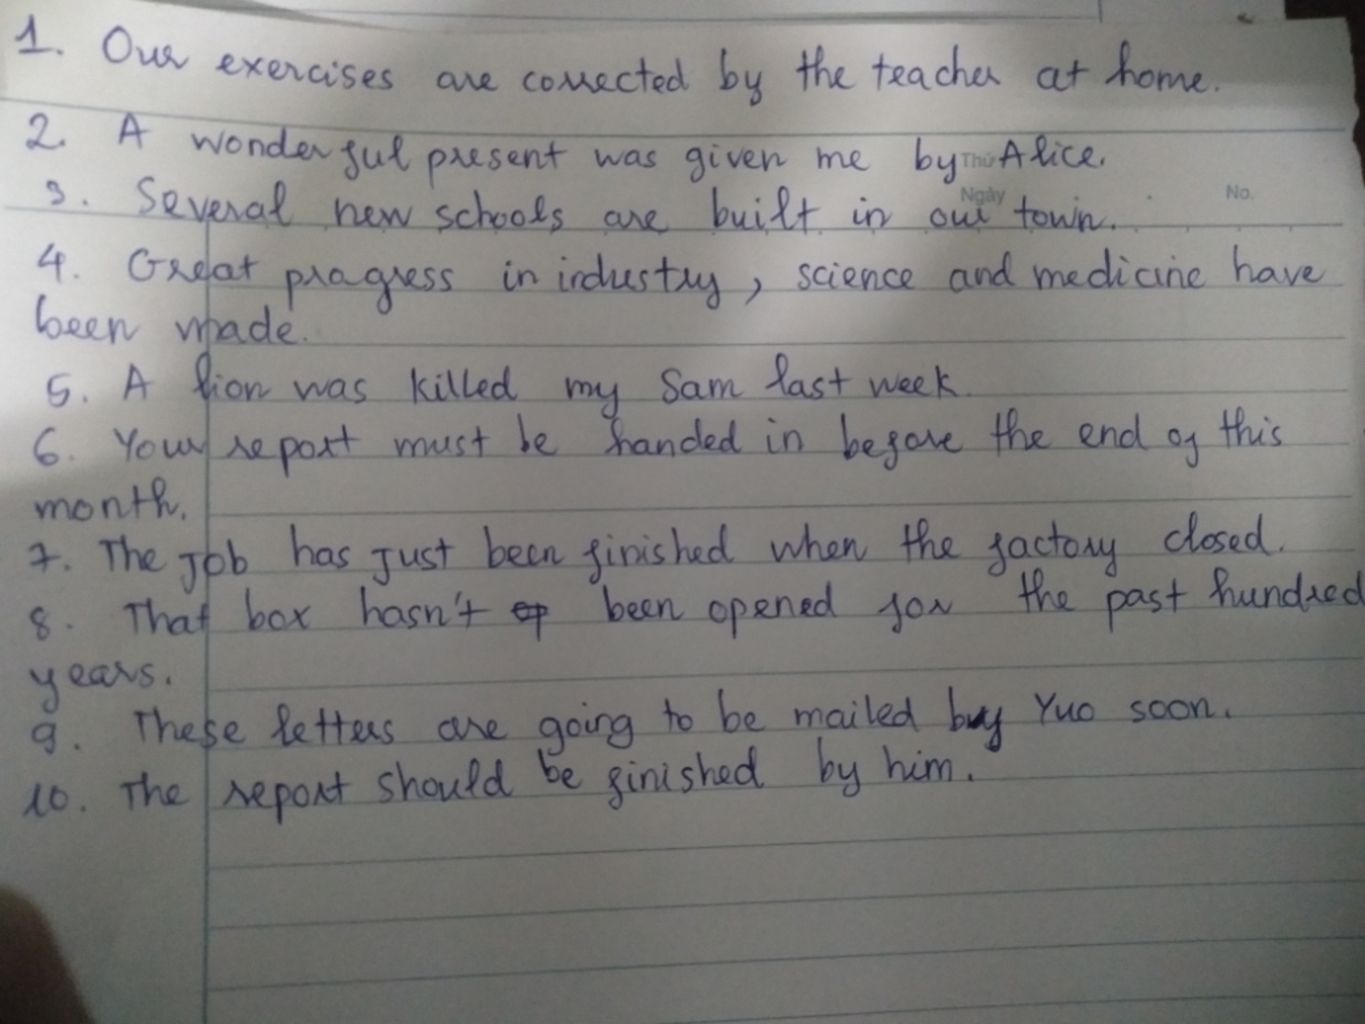 1. Our exercises are corrected by the teacher at home.
2. A wonderful present was given me by Alice.
Thứ
Ngày
No.
3. Several new schools are built in our town.
4. Great progress in industry, science and medicine have
been made.
5. A lion was killed my Sam last week.
6. Your report must be handed in before the end of this
month.
7. The job has just been finished when the factory closed.
8. That box hasn't been opened for the past hundred
years.
9. These letters are going to be mailed buy Yuo soon.
10. The report should be finished by him.